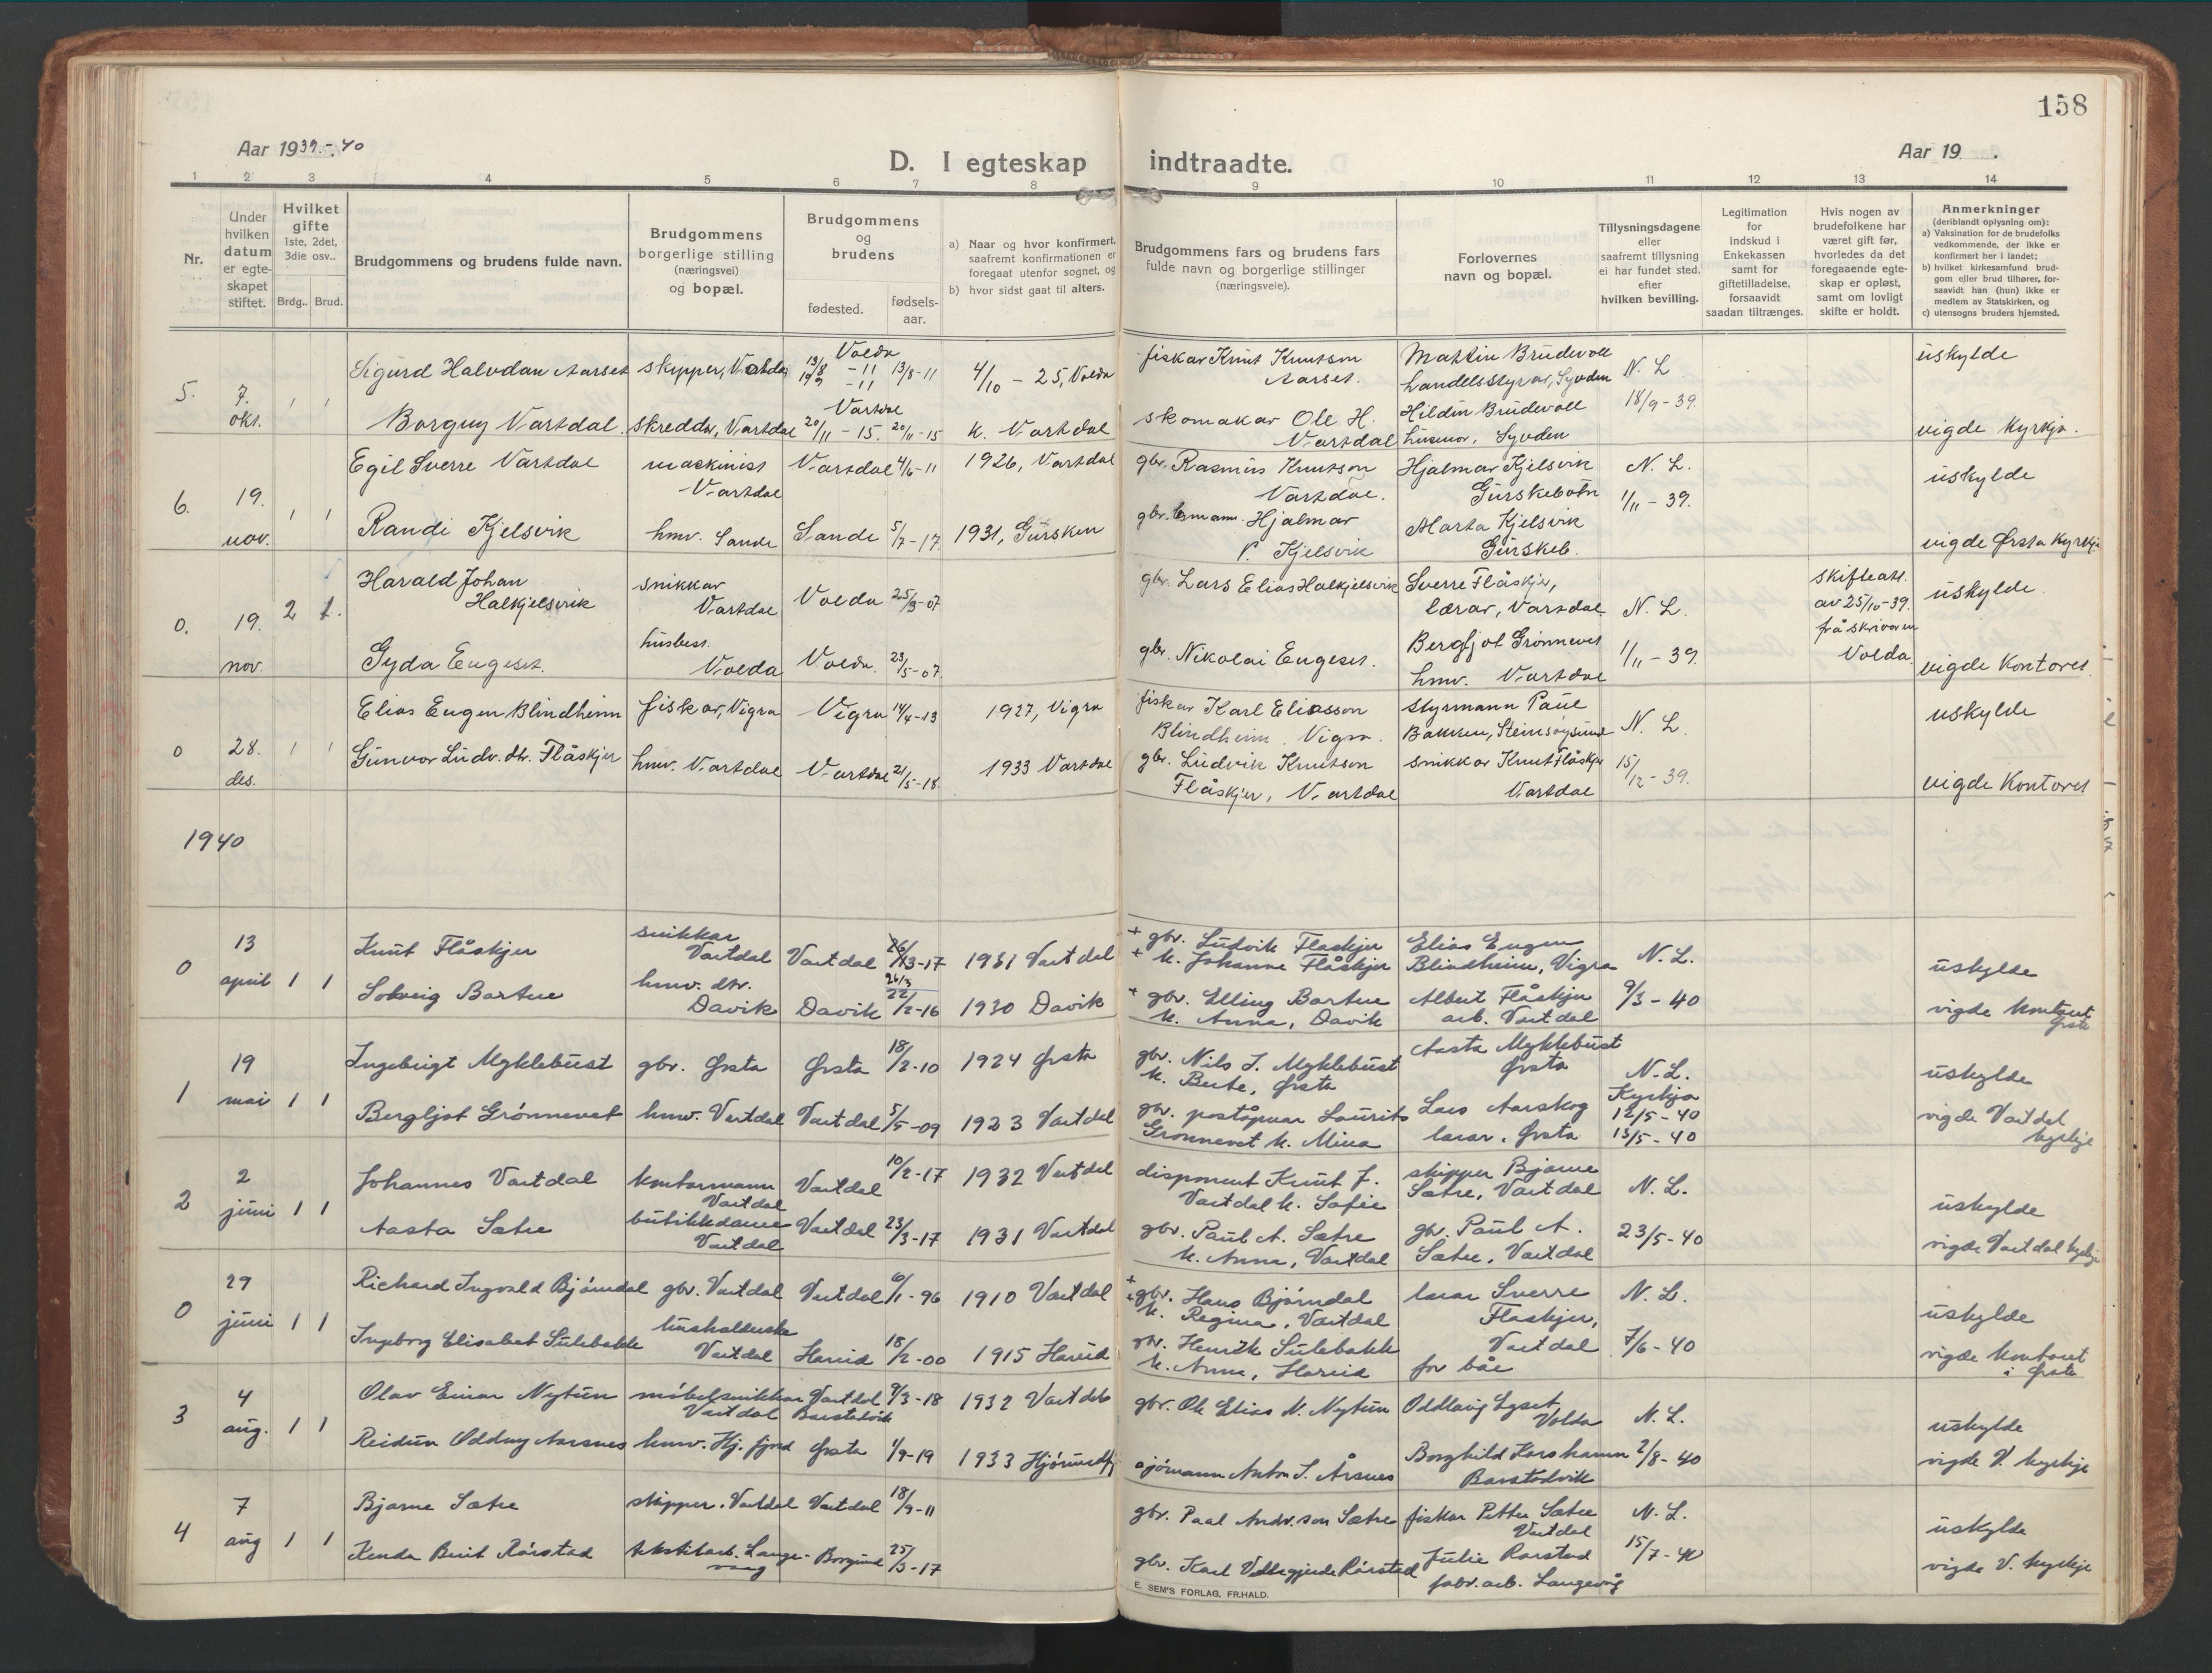 158
Aar 1939.-40
D. I egteskap indtraadte.
Aar 19 .
1 2 3 4 5 6 7 8 9 10 11 12 13 14
Nr.
Under hvilken datum er egteskapet stiftet.
Hvilket gifte 1ste, 2det, 3die osv..
Brdg.. Brud.
Brudgommens og brudens fulde navn.
Brudgommens borgerlige stilling (næringsvei) og bopæl.
Brudgommens og brudens
fødested.
fødsels-aar.
a) Naar og hvor konfirmert, saafremt konfirmationen er foregaat utenfor sognet, og
b) hvor sidst gaat til alters.
Brudgommens fars og brudens fars fulde navn og borgerlige stillinger (næringsveie).
Forlovernes navn og bopæl.
Tillysningsdagene eller saafremt tillysning ei har fundet sted, efter hvilken bevilling.
Legitimation for indskud i Enkekassen samt for giftetilladelse, forsaavidt saadan tiltrænges.
Hvis nogen av brudefolkene har været gift før, hvorledes da det foregaaende egteskap er opløst, samt om lovligt skifte er holdt.
Anmerkninger (deriblandt oplysning om):
a) Vaksination for de brudefolks vedkommende, der ikke er konfirmert her i landet;
b) hvilket kirkesamfund brudgom eller brud tilhører, forsaavidt han (hun) ikke er medlem av Statskirken, og
c) utensogns bruders hjemsted.
5. 7. okt. 1 1
Sigurd Halvdan Aarset skipper, Vartdal Volda 13/8-11 4/10 - 25, Volda
fiskar Knut Knutson Aarset. Martin Brudevoll handelsstyrar, Syvden N. L. 18/9-39. uskylde
Borguy Vartdal. skreddar, Vartdal Vartdal 20/11 - 15. 20/11-15 k. Vartdal
skomakar Ole H. Vartdal Hildur Brudevoll husmor, Syvden vigde kyrkja.
6. 19. nov. 1 1
Egil Sverre Vartdal maskinist Vartdal Vartdal 4/6-11 1926, Vartdal
gbr. Rasmus Knutson Vartdal. Hjalmar Kjelsvik Gurskebotn N. L. 1/11-39. uskylde
Randi Kjelsvik hmv. Sande Sande 5/7-17. 1931, Gursken
Hjalmar P. Kjelsvik Marta Kjelsvik Gurskeb. vigde Ørsta kyrkja
0. 19. nov. 2 1.
Harald Johan Halkjelsvik snikkar Vartdal Volda 25/9-07
gbr. Lars Elias Halkjelsvik Sverre Flåskjer, lærar, Vartdal N. L. 1/11-39. skifteatt. av 25/10-39. frå skrivaren Volda. uskylde.
Gyda Engeset. husbest. Volda Volda. 23/5-07.
gbr. Nikolai Engeset. Bergljot Grønnevet hmv. Vartdal vigde kontoret.
0 28. des. 1 1
Elias Eugen Blindheim fiskar, Vigra Vigra 14/4-13 1927, Vigra
fiskar Karl Eliasson Blindheim, Vigra. styrmann Paul Bakken, Steinsøysund N. L. 15/12-39. uskylde
Gunvor Ludv. dtr. Flåskjer hmv. Vartdal Vartdal 21/5-18. 1933 Vartdal
gbr. Ludvik Knutson Flåskjer, Vartdal snikkar Knut Flåskjer Vartdal vigde kontoret
1940
0 13 april 1 1
Knut Flåskjer snikkar Vartdal Vartdal 26/3-17 1931 Vartdal
+ gbr. Ludvik Flaskjer + k. Johanne Flåskjer Elias Eugen Blindheim, Vigra N. L. 9/3-40 uskylde
Solveig Bortne hmv. dtr. Davik Davik 22/2-16 1930 Davik
+ gbr. Elling Bortne k. Anna, Davik Albert Flåskjer arb. Vartdal vigde kontoret Ørsta
1 19 mai 1 1
Ingebrigt Myklebust gbr. Ørsta Ørsta 18/2-10 1924 Ørsta
gbr. Nils J. Myklebust k. Berte, Ørsta Aasta Myklebust Ørsta N. L. Kyrkja 12/5-40 13/5-40 uskylde
Bergljot Grønnevet hmv. Vartdal Vartdal 5/5-09 1923 Vartdal
gbr. postopnar Laurits Grønnevet k. Mina Lars Aarskog lærar, Ørsta vigde Vartdal kyrkje
2 2 juni 1 1
Johannes Vartdal kontormann Vartdal Vartdal 10/2-17 1932 Vartdal
disponent Knut J. Vartdal k. Sofie skipper Bjarne Sætre, Vartdal N. L. 23/5-40 uskylde
Aasta Sætre butikkdame Vartdal Vartdal 23/3-17 1931 Vartdal
gbr. Paul A. Sætre k. Anna, Vartdal gbr. Paul A. Sætre, Vartdal vigde Vartdal kyrkje
0 29 juni 1 1
Richard Ingvald Bjørndal gbr. Vartdal Vartdal 6/1-96 1910 Vartdal
+ gbr. Hans Bjørndal + k. Regina, Vartdal lærar Sverre Flaskjer, Vartdal for båe N. L. 7/6-40 uskylde
Ingeborg Elisabet Sulebakk husholderske Vartdal Hareid 18/2-00 1915 Hareid
gbr. Henrik Sulebakk k. Anne, Hareid vigde kontoret i Ørsta
3 4 aug. 1 1
Olav Einar Nytun møbelsnikkar Vartdal Vartdal Barstadvik 9/3-18 1932 Vartdal
gbr. Ole Elias N. Nytun Oddlaug Lyset Volda N. L. 2/8-40 uskylde
Reidun Oddny Aarsnes hmv. Hj. fjord Ørsta 1/9-19 1933 Hjørundfj
sjømann Anton S. Årsnes Borghild Korshamn Barstadvik vigde V. kyrkje
4 7 aug 1 1
Bjarne Sætre skipper. Vartdal Vartdal 18/9-11
gbr. Paal Andr. son Sætre fiskar Petter Sætre Vartdal N. L. 15/7-40 uskylde
Kenda Berit Rørstad tekstilarb. Langevaag Borgund 25/3-17
gbr. Karl Rørstad Julie Rørstad fabr. arb. Langevåg vigde V. kyrkje
E. SEM'S FORLAG, FR.HALD.